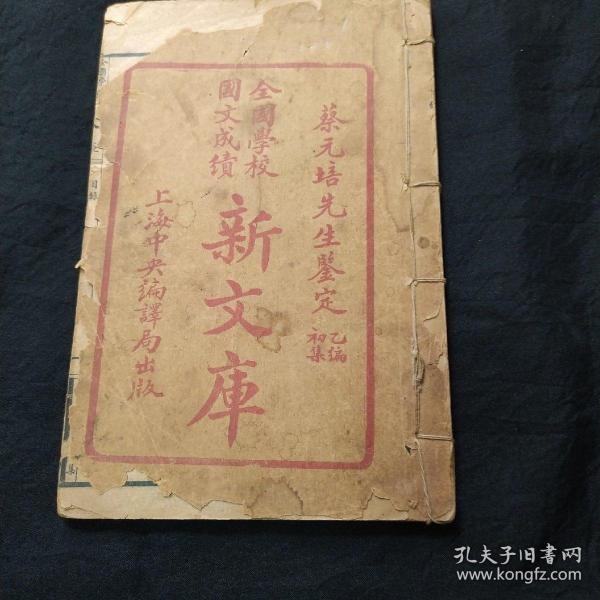 蔡元培先生鑒定
乙編
初集
全國學校
國文成績
新文庫
上海中央編譯局出版
目錄
集
孔夫子旧书网
www.kongfz.com